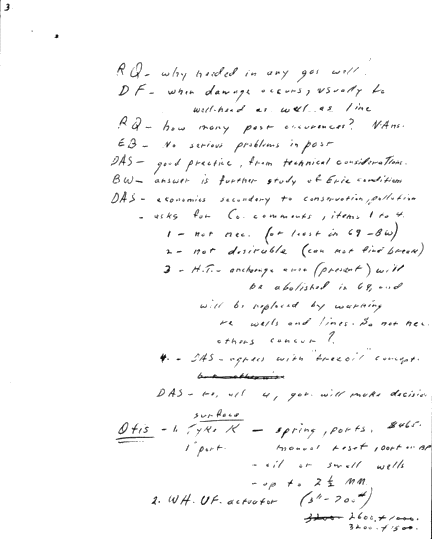 3
RQ - why needed in any gas well?
DF - when damage occurs, usually to
well-head as well as line
RQ - how many past occurences? NAns.
EB - No serious problems in past
DAS - good practice, from technical considerations.
BW - answer is further study of Erie conditions
DAS - economics secondary to conservation, pollution
- asks for Co. comments, items 1 to 4.
1 - not nec. (at least in 69 - BW)
2 - not desirable (can not find break)
3 - H.T. - anchorage area (present) will
be abolished in 68, and
will be replaced by warning
re wells and lines. So not nec.
others concur?
4. - SAS - agrees with "            " concept.
DAS - no, all 4, gov. will make decision
surface
Otis - 1. Type K - spring, ports.
1" port. manual reset, port or BP
- oil or small wells
- up to 2 ½ MM.
2. WH. UF. actuator (3" - 700#)
2600, + 1000.
3200. + 1500.